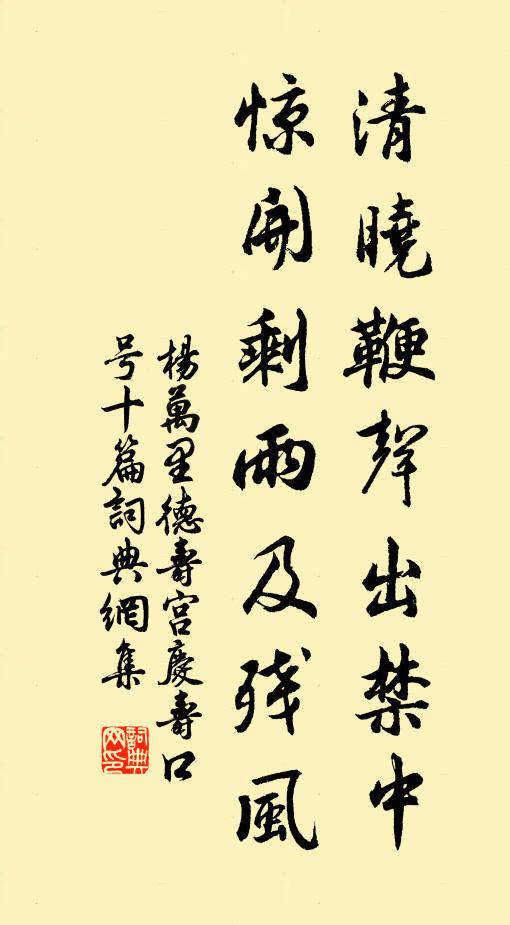 清曉鞭聲出禁中
惊開剩雨及残風
楊萬里德壽宮慶壽口
号十篇詞典網集
詞典网印